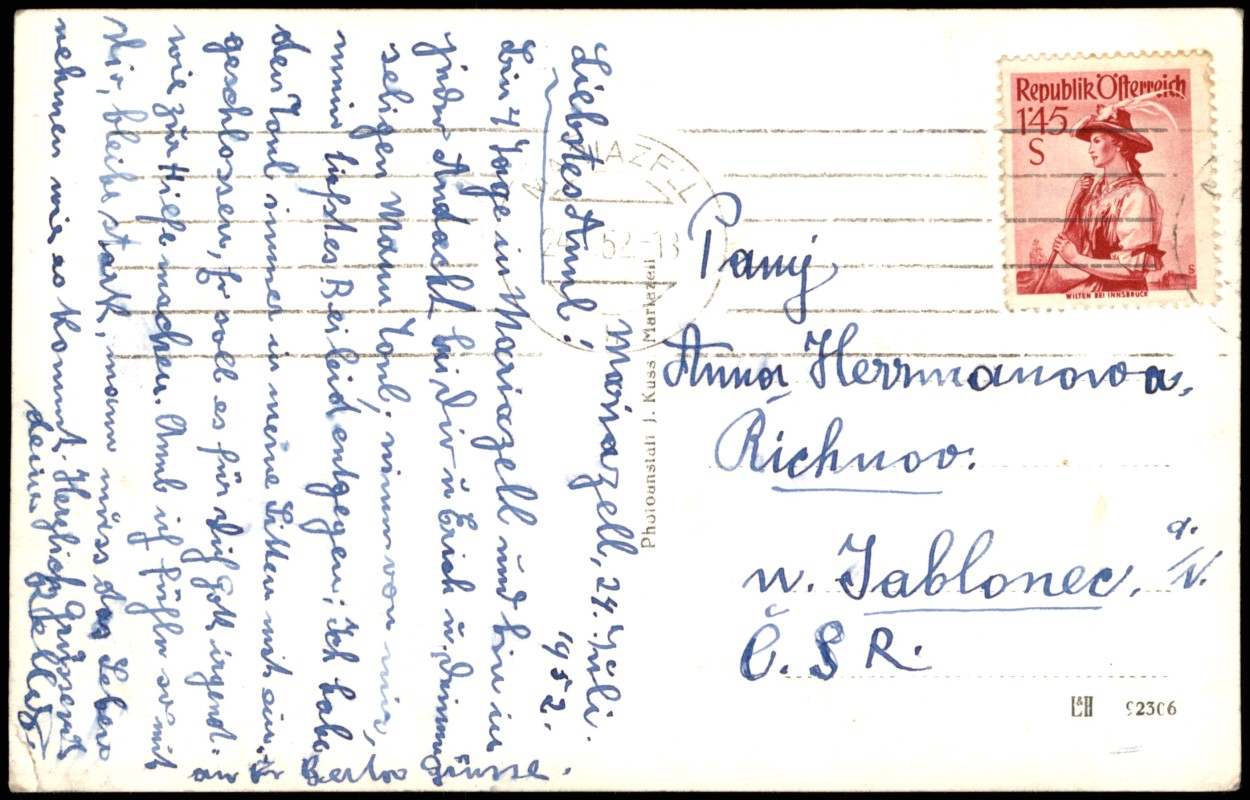 Mariazell, 24. Jüli.
1952.
Liebstes Annl!
Bin 4 Tage in Mariazell und bin in
jeder Andacht bei dir u Erich u. deinem
seligen Mann Tonl, nimm von mir,
mein tiefstes Beileid entgegen; Ich habe
den Tonl immer in meine Bitten mit ein-
geschlossen, Er soll es für dich Gott irgend-
wie zur Hilfe machen. Annl ich fühle so mit
dir, bleibe stark, mann müss das Leben
nehmen wie es kommt. Herzlich Grüssend
deine
an Grüsse.
Photoanstalt J. Kuss, Mariazell
MARIAZELL
24. 52-18
Republik Österreich
1'45
S
WILTEN BEI INNSBRUCK
Paný
Anna Herrmanowa,
Richnov.
n. Jablonec. d./N.
Č.S.R.
L&H 92306